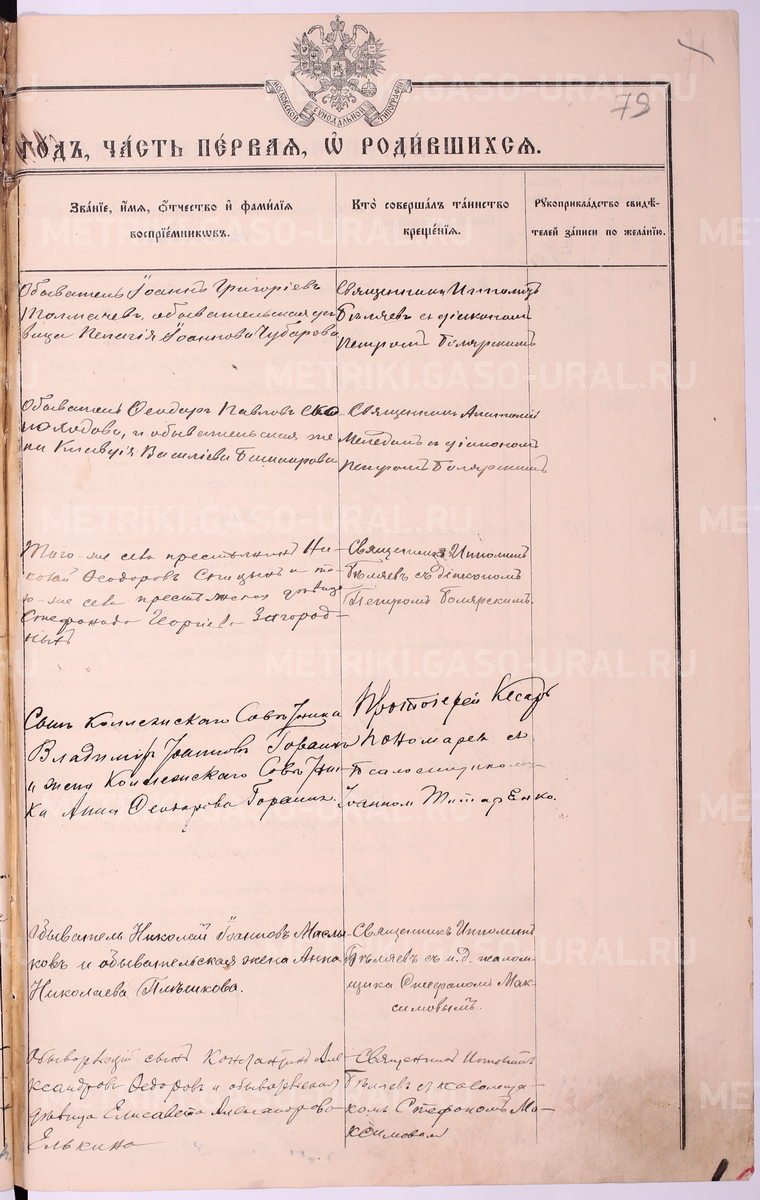 МОСКОВСКОЙ СѴНОДАЛЬНОЙ ТИПОГРАФІИ
79
ГОДЪ, ЧА́СТЬ ПЕ́РВАЯ, Ѡ҆ РОДИ́ВШИХСЯ.
Зва́нїе, и҆́мя, ѻ҆́тчество и҆ фами́лїя
воспрїе́мниковъ.
Кто̀ соверша́лъ та́инство
креще́нїя.
Рукоприкла́дство свидѣ́-
телей за́писи по жела́нїю.
Обыватель Іоаннъ Григоріевъ
Толмачевъ, обывательская дѣ
вица Пелагія Іоаннова Чубарова
Священникъ Ипполитъ
Бѣляевъ съ діакономъ
Петромъ Болярскимъ
Обыватель Ѳеодоръ Павловъ Ско-
роходовъ, и обывательская же
на Клавдія Василіева Башкирова
Священникъ Анатолій
съ діакономъ
Петромъ Болярскимъ
Того-же села крестьянинъ Ни-
колай Ѳеодоровъ Спицынъ и то-
го-же села крестьянская дѣвица
Стефанида Георгіева Загород-
ныхъ
Священникъ Ипполитъ
Бѣляевъ съ діакономъ
Петромъ Болярскимъ.
Сынъ Коллежскаго Совѣтника
Владиміръ Іоанновъ
и жена Коллежскаго Совѣтни-
ка Анна Ѳеодорова
Протоіерей Кесарь
Пономаревъ съ
псаломщикомъ
Іоанномъ Титаренко.
Обыватель Николай Іоанновъ Маслы-
ковъ и обывательская жена Анна
Николаева Плѣшкова.
Священникъ Ипполитъ
Бѣляевъ съ и. д. псалом-
щика Стефаномъ Мак-
симовымъ.
сынъ Константинъ Але
ксандровъ Ѳедоровъ и обывательская
дѣвица Елисавета Александрова
Елькина
Священникъ Ипполитъ
Бѣляевъ съ псаломщи-
комъ Стефаномъ Ма-
ксимовымъ
METRIKI.GASO-URAL.RU